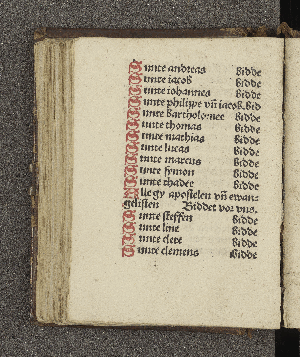 Sunte andreas Bidde
Sunte iacob Bidde
Sunte iohannes Bidde
Sunte philippe vn̄ iacob. Bid
Sunte Bartholomee Bidde
Sunte thomas Bidde
Sunte mathias Bidde
Sunte lucas Bidde
Sunte marcus Bidde
Sunte symon Bidde
Sunte thadee Bidde
Alle gy apostelen vn̄ ewan-
gelisten Biddet vor vns.
Sunte steffen Bidde
Sunte line Bidde
Sunte clete Bidde
Sunte clemens Bidde